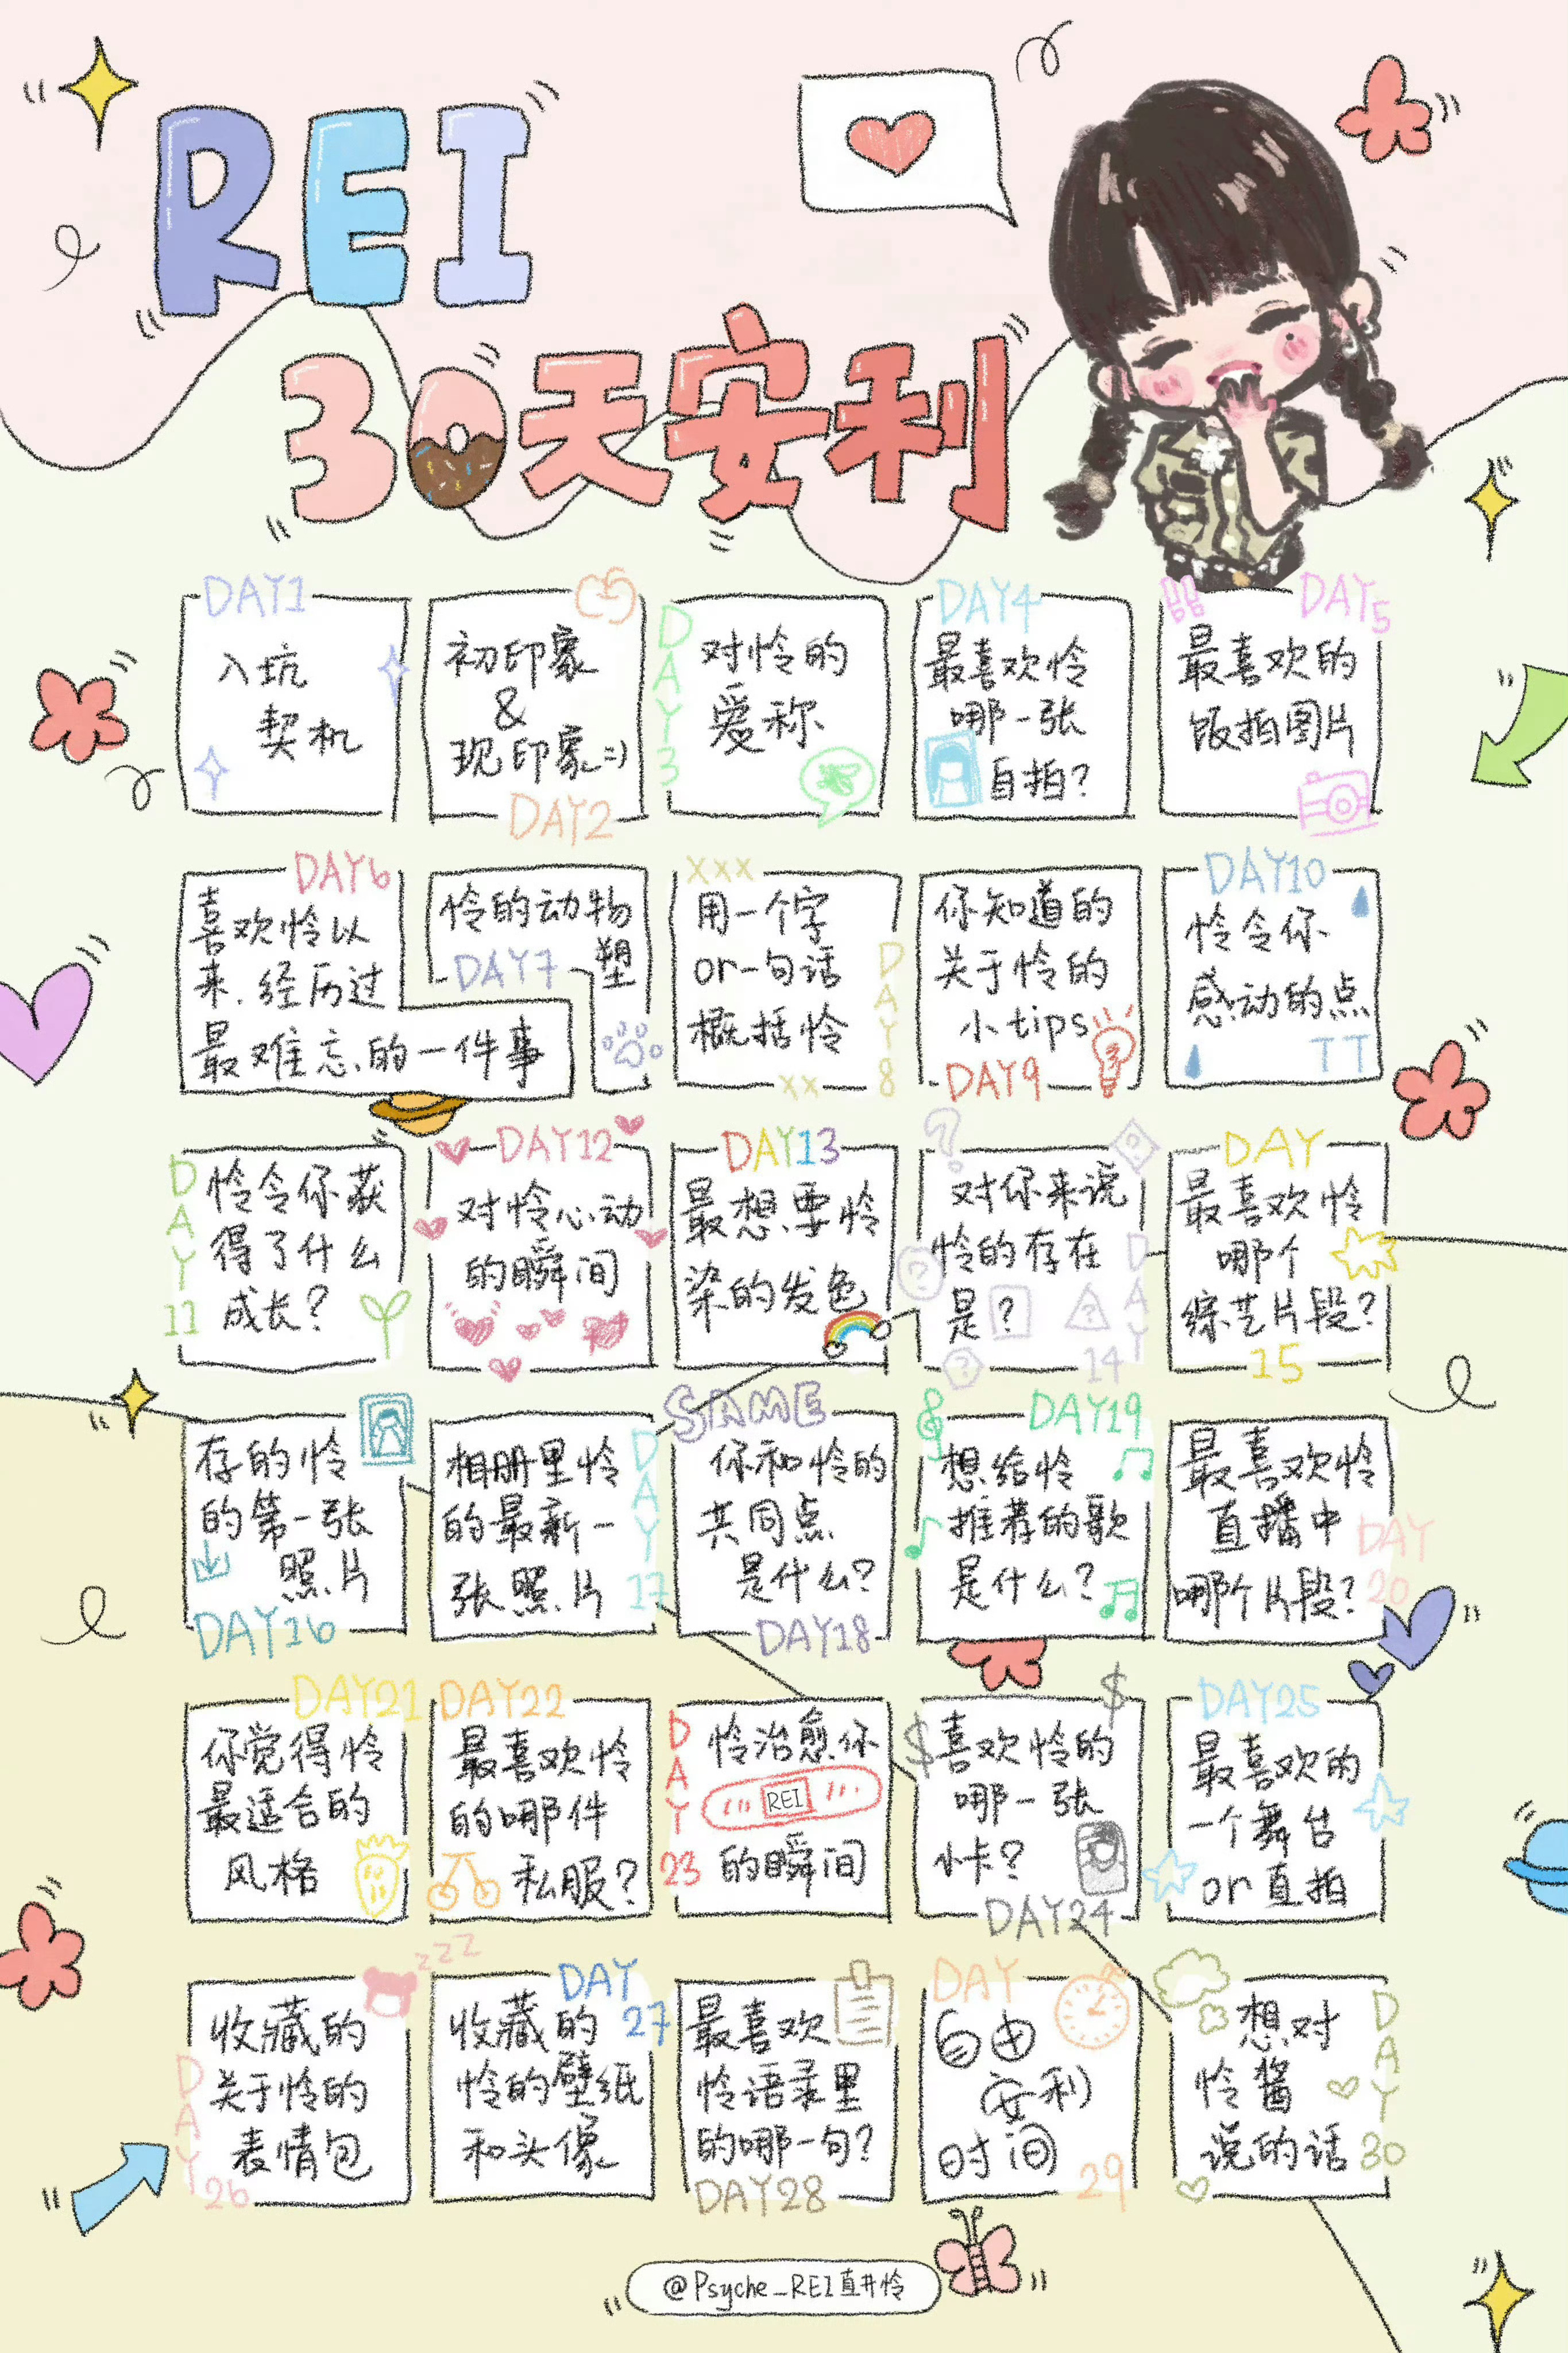 REI
30天安利
DAY1
入坑
契机
初印象
&
现印象=)
DAY2
DAY3
对怜的
爱称
DAY4
最喜欢怜
哪一张
自拍?
DAY5
最喜欢的
饭拍图片
DAY6
喜欢怜以
来,经历过
最难忘的一件事
怜的动物
塑
DAY7
xxx
用一个字
or一句话
概括怜
xx
DAY8
你知道的
关于怜的
小tips
DAY9
DAY10
怜令你
感动的点
TT
DAY11
怜令你获
得了什么
成长?
DAY12
对怜心动
的瞬间
DAY13
最想要怜
染的发色
?
对你来说
怜的存在
是?
DAY14
DAY
最喜欢怜
哪个
综艺片段?
15
存的怜
的第一张
照片
DAY16
相册里怜
的最新一
张照片
DAY17
SAME
你和怜的
共同点
是什么?
DAY18
DAY19
想给怜
推荐的歌
是什么?
最喜欢怜
直播中
哪个片段?
DAY20
DAY21
你觉得怜
最适合的
风格
DAY22
最喜欢怜
的哪件
私服?
DAY23
怜治愈你
REI
的瞬间
$
$喜欢怜的
哪一张
小卡?
DAY24
DAY25
最喜欢的
一个舞台
or直拍
zzz
收藏的
关于怜的
表情包
DAY26
DAY27
收藏的
怜的壁纸
和头像
最喜欢
怜语录里
的哪一句?
DAY28
DAY
自由
安利
时间
29
想对
怜酱
说的话
DAY30
@Psyche_REI直井怜